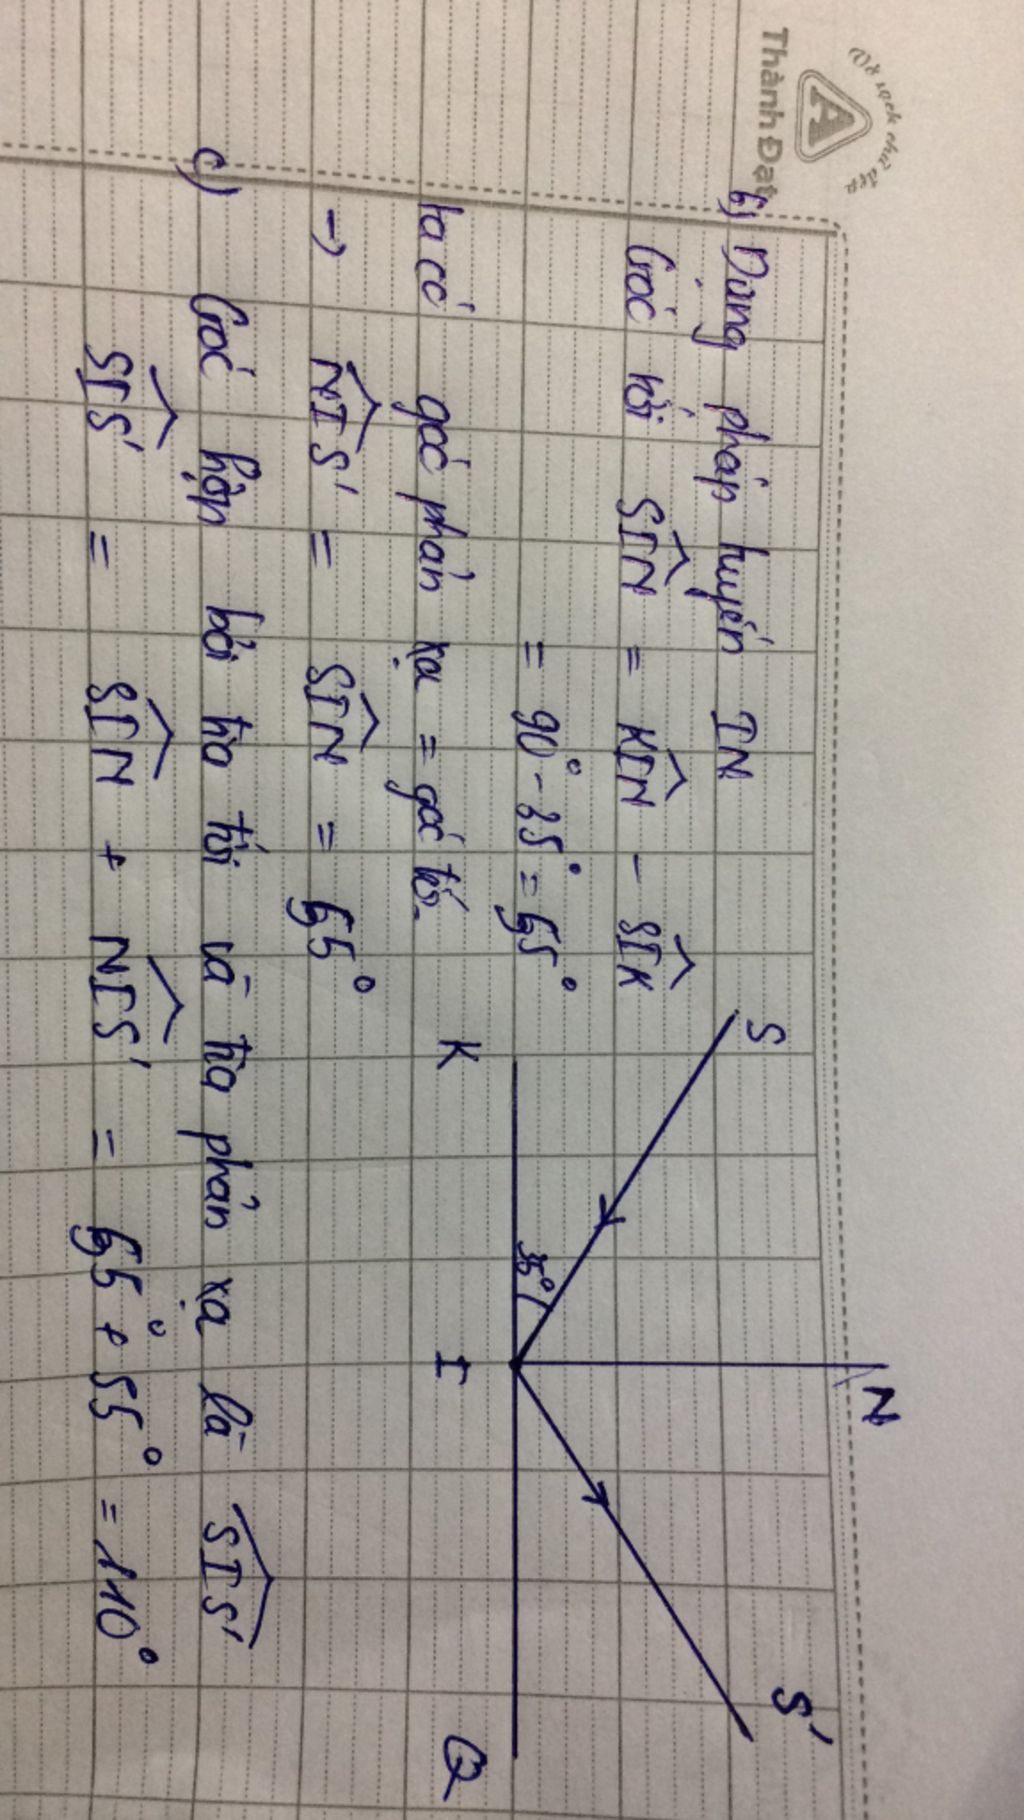 Vở sạch chữ đẹp
A
Thành Đạt
b) Dựng pháp tuyến IN
Góc tới SIN = KIN - SIK
= 90° - 35° = 55°
Ta có góc phản xạ = góc tới.
→ NIS' = SIN = 55°
c) Góc hợp bởi tia tới và tia phản xạ là SIS'
SIS' = SIN + NIS' = 55° + 55° = 110°
S
N
S'
35°
K
I
Q